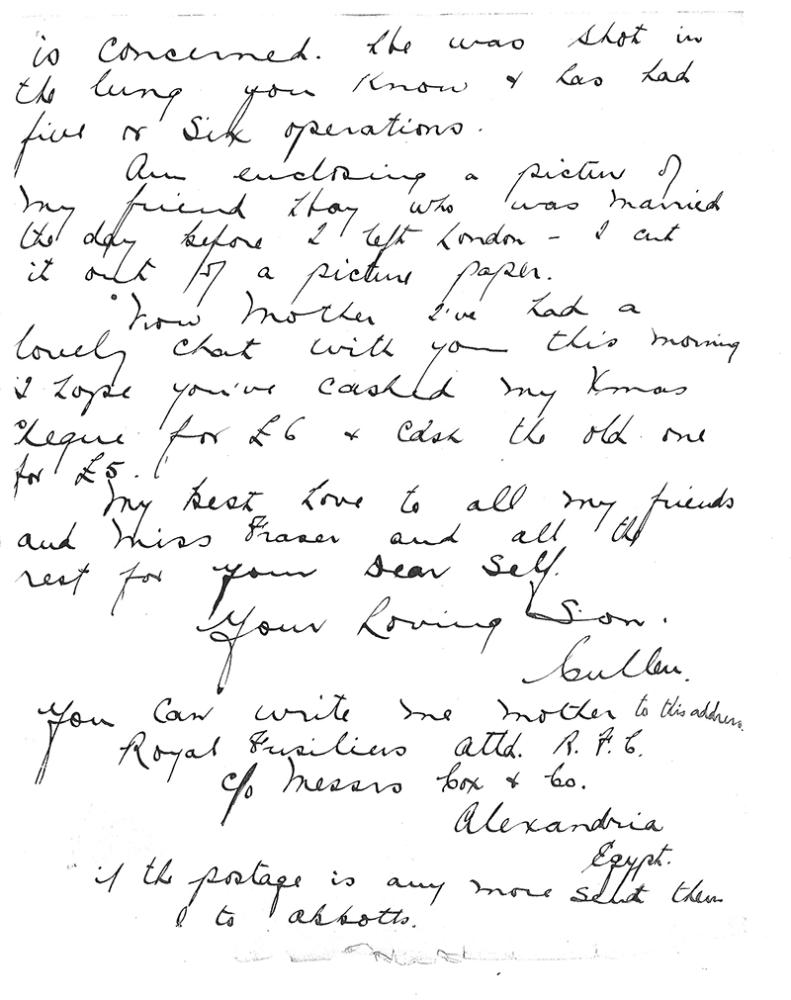 is concerned. He was shot in
the lung you know & has had
five or six operations.
Am enclosing a picture of
my friend Hay who was married
the day before I left London – I cut
it out of a picture paper.
Now Mother I've had a
lovely chat with you this morning
I hope you've cashed my Xmas
cheque for £6 & cash the old one
for £5.
My best love to all my friends
and Miss Fraser and all the
rest for your Dear Self.
Your Loving Son.
Cullen.
You can write me mother to this address.
Royal Fusiliers attd. R.F.C.
c/o Messrs Cox & Co.
Alexandria
Egypt.
if the postage is any more send them
to abbotts.